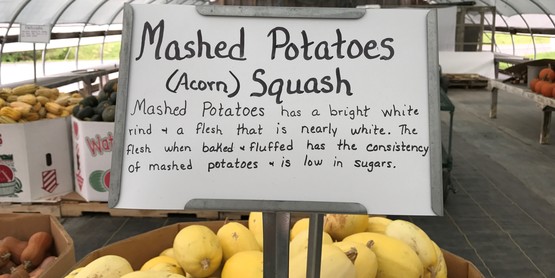 Mashed Potatoes
(Acorn) Squash
Mashed Potatoes has a bright white
rind & a flesh that is nearly white. The
flesh when baked & fluffed has the consistency
of mashed potatoes & is low in sugars.
Wat